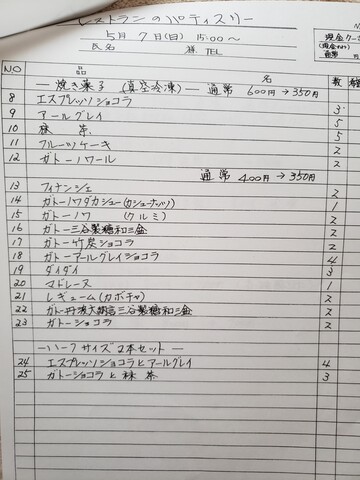 レストランのパティスリー
5月 7日(日) 15:00〜
氏名 様. TEL
NO 品 名 数
—焼き菓子 (真空冷凍)— 通常 600円→350円
8 エスプレッソショコラ 3
9 アールグレイ 5
10 抹茶. 5
11 フルーツケーキ 2
12 ガトーノワール 2
通常 400円→350円
13 フィナンシェ 2
14 ガトーノワダカジュー(カシューナッツ) 1
15 ガトーノワ (クルミ) 2
16 ガトー三谷製糖和三盆 2
17 ガトー竹炭ショコラ 2
18 ガトーアールグレイショコラ 4
19 ダイダイ 3
20 マドレーヌ 1
21 レギューム(カボチャ) 2
22 ガトー丹波大納言三谷製糖和三盆 2
23 ガトーショコラ 2
—ハーフサイズ2本セット—
24 エスプレッソショコラとアールグレイ 4
25 ガトーショコラと抹茶 3